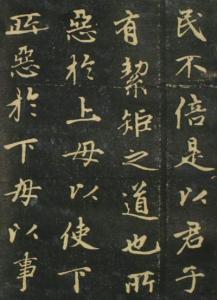 民不倍是以君子
有絜矩之道也所
惡於上毋以使下
所惡於下毋以事